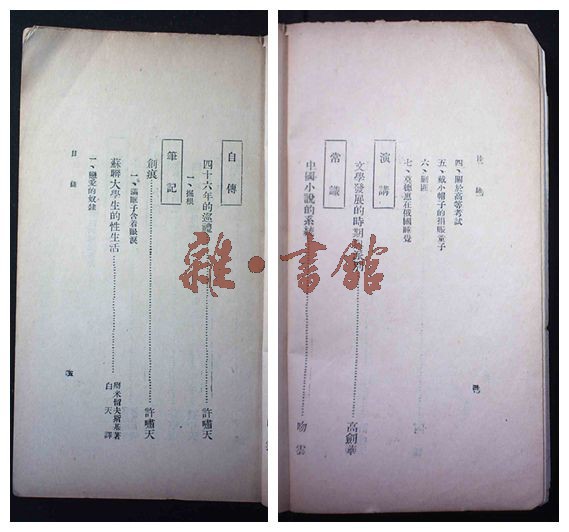 目錄
四、關於高等考試
五、戴小帽子的捐賑童子
六、剿匪
七、莫德惠在俄國睡覺
演講
文學發展的時期……高劍華
常識
中國小說的系統……吻雲
自傳
四十六年的巡禮……許嘯天
一、掘根
筆記
創痕……許嘯天
一、滿眶子含着眼淚
蘇聯大學生的性生活……米留夫斯基著
白天譯
一、戀愛的奴隸
目錄
雜·書館